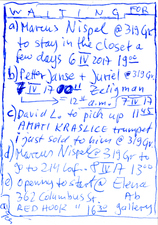 WAITING FOR
a) Marcus Nispel @ 319 Gr.
to stay in the closet a
few days 6 IV 2017 1900
b) Peter Janse + Juriel @ 319 Gr.
7 IV 17 Zeligman
= 12 a.m. 7 IV 17
c) David L. to pick up 1145
AMATI KRASLICE trumpet
I just sold to him @ 319
d) Marcus Nispel @ 319 Gr. to
go to 2 Caf. 8 IV 17 1300
e) opening to steal @ Elena
362 Columbus Str. Ab
RED HOOK 1630 gallery